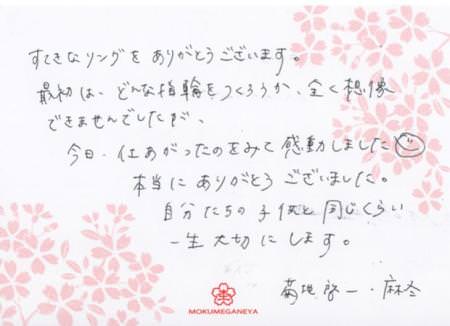 すてきなリングをありがとうございます。
最初は、どんな指輪をつくろうか、全く想像
できませんでしたが、
今日、仕あがったのをみて感動しました
本当にありがとうございました。
自分たちの子供と同じくらい
一生大切にします。
菊地 一・麻
MOKUMEGANEYA